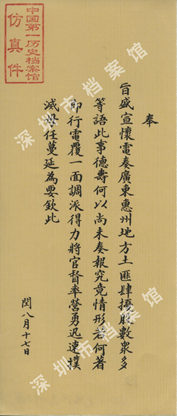 中国第一历史档案馆
仿真件
奉
旨盛宣懷電奏廣東惠州地方土匪肆擾股數衆多
等語此事德壽何以尚未奏報究竟情形若何著
即行電覆一面調派得力將官督率營勇迅速撲
滅毋任蔓延為要欽此
閏八月十七日
深圳市档案馆
深圳市档案馆
深圳市档案馆